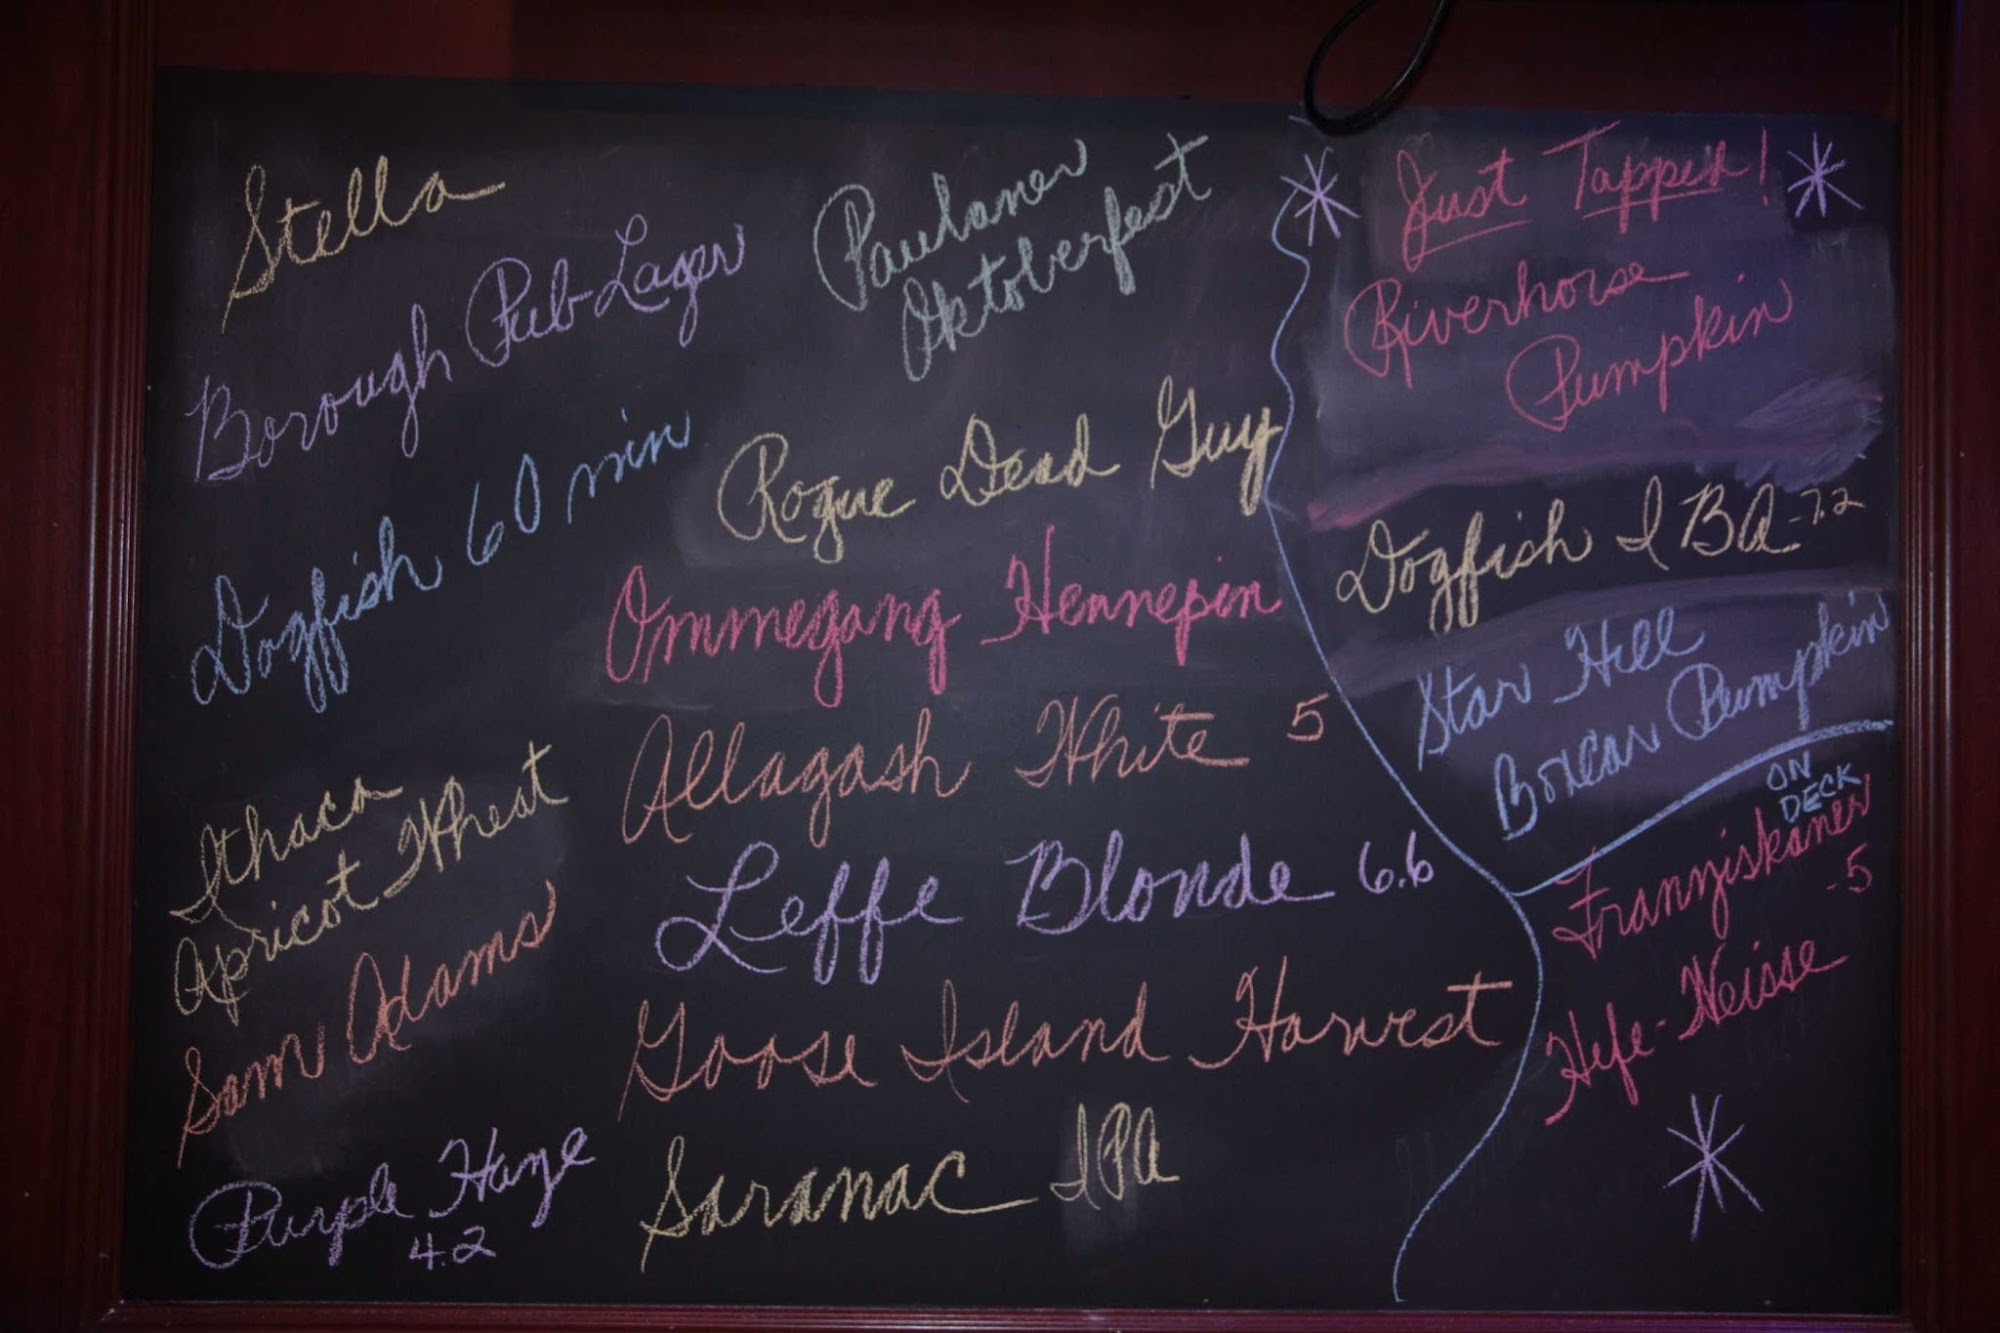 Stella
Borough Pub-Lager
Dogfish 60 min
Ithaca
Apricot Wheat
Sam Adams
Purple Haze
4.2
Paulaner
Oktoberfest
Rogue Dead Guy
Ommegang Hennepin
Allagash White 5
Leffe Blonde 6.6
Goose Island Harvest
Saranac IPA
Just Tapped!
Riverhorse
Pumpkin
Dogfish IBA-7.2
Star Hill
Boxcar Pumpkin
ON
DECK
Franziskaner
-5
Hefe-Weisse